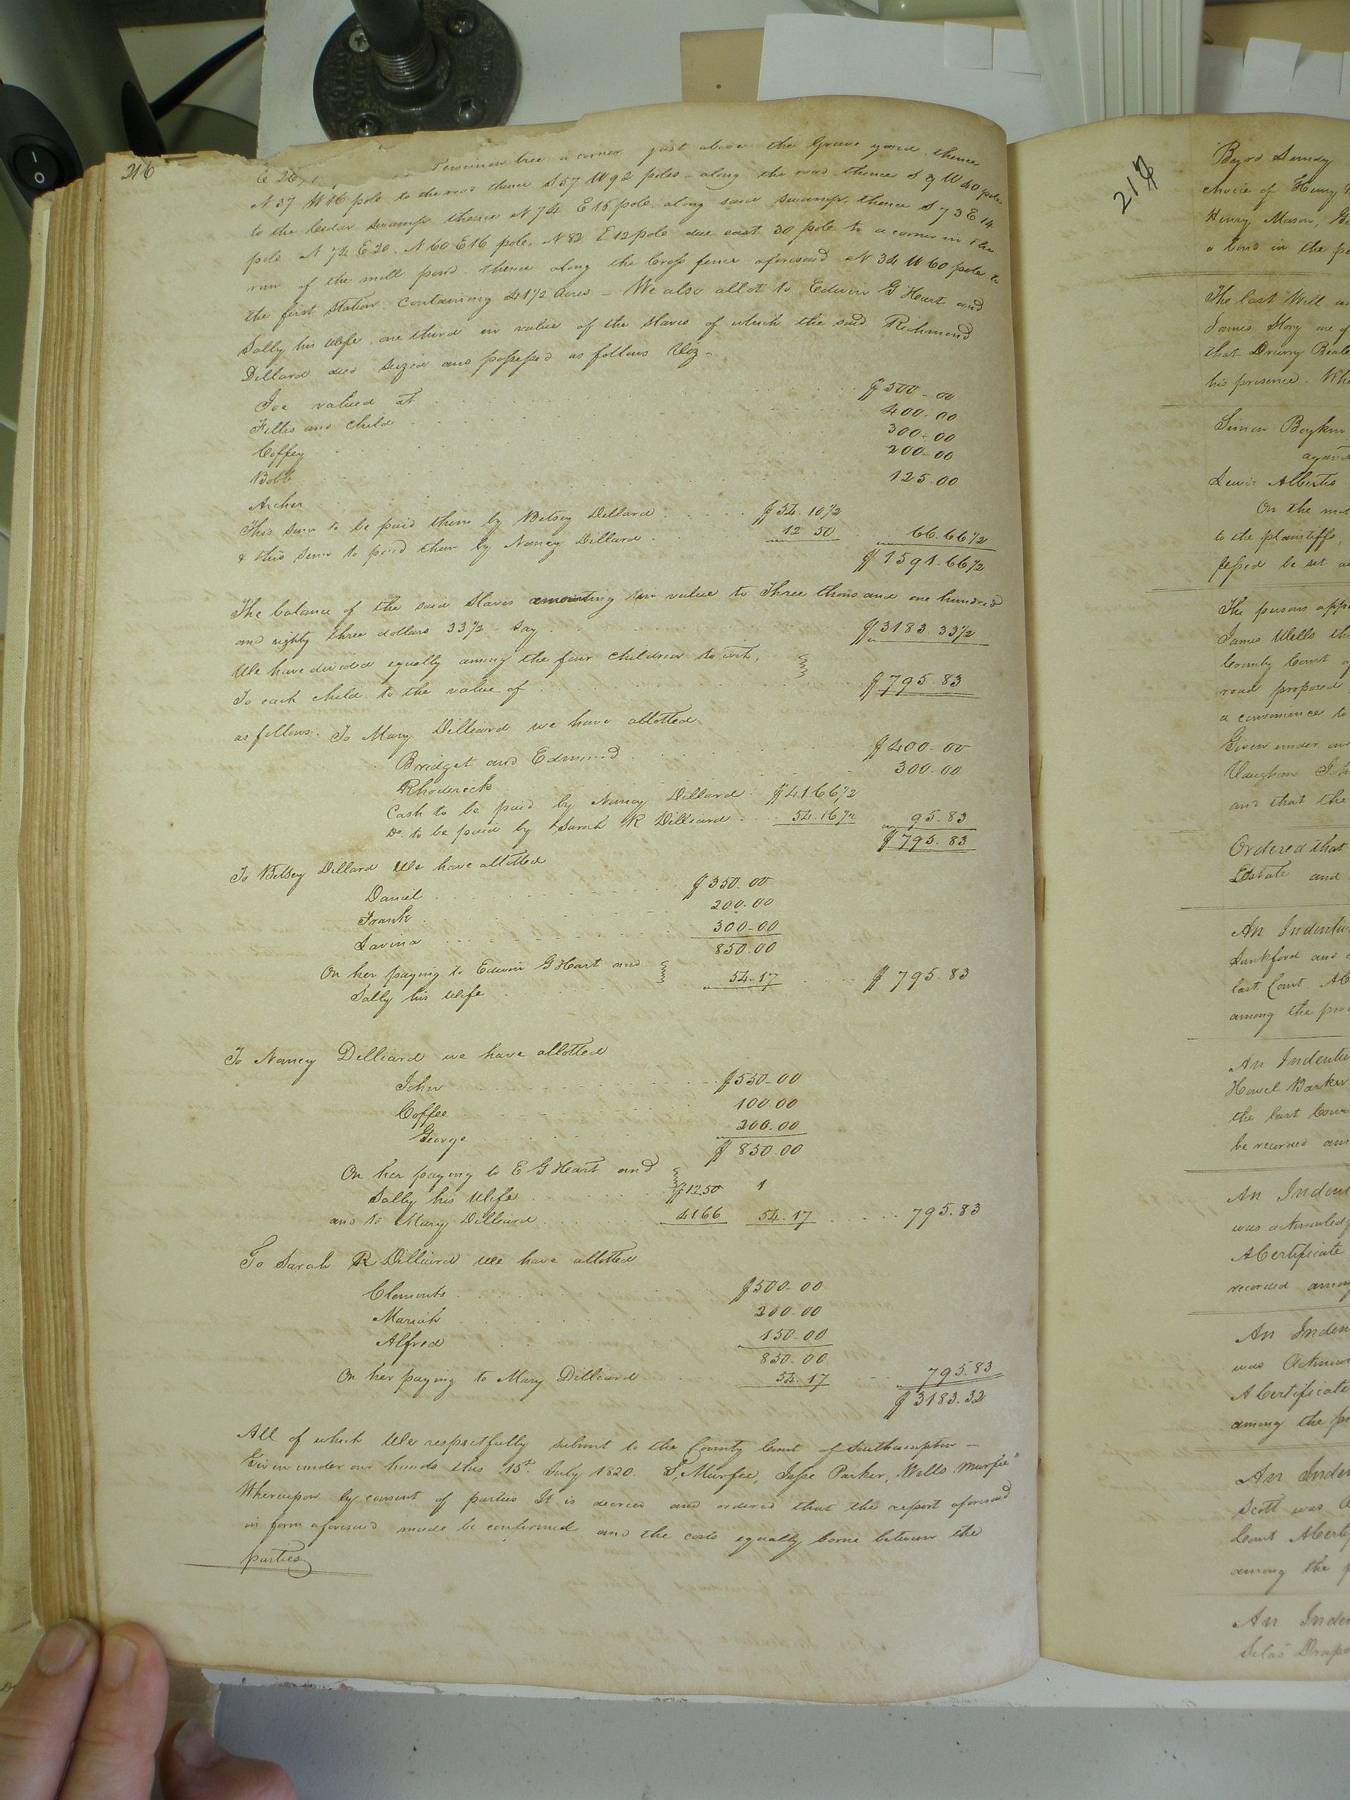 216
Persimmon tree a corner just above the Grave yard, thence
N 57 W 16 pole to the road thence S 57 W 92 poles along the road thence S 9 W 40 poles
to the Cedar Swamp thence N 74 E 16 pole along said swamp, thence S 73 E 14
pole N 74 E 20. N 60 E 16 pole, N 82 E 12 pole due east 30 pole to a corner in the
run of the mill pond. thence along the Cross fence aforesaid N 34 W 60 pole to
the first Station. Containing 41½ acres – We also allot to Edwin G Hart and
Sally his wife, one third in value of the Slaves of which the said Richmond
Dillard died Seized and possessed as follows Viz-
Joe valued at $500-00
Fillis and Child 400.00
Coffey 300-00
Bobb 200-00
Archer 125.00
This sum to be paid them by Betsey Dillard $54.16½
& this Sum to paid them by Nancy Dillard 12 50 66.66½
$1591.66½
The balance of the said Slaves amounting in value to Three thousand one hundred
and eighty three dollars 33½ – Say $3183 33½
We have divided equally among the four Children to wit,
To each child to the value of $795.83
as follows. To Mary Dilliard we have allotted
Bridget and Edmund $400.00
Rhoderick 300.00
Cash to be paid by Nancy Dillard $41.66½
Do. to be paid by Sarah R Dilliard 54.16½ 95.83
$795.83
To Betsey Dillard We have allotted
Daniel $350.00
Frank 200.00
Lavina 300-00
850.00
On her paying to Edwin G Hart and
Sally his Wife 54.17 $795.83
To Nancy Dilliard we have allotted
John $550-00
Coffee 100 00
George 200.00
$850.00
On her paying to E G Hart and
Sally his Wife $12 50
and to Mary Dilliard 41 66 54.17 795.83
To Sarah R Dilliard We have allotted
Clements $500.00
Mariah 200.00
Alfred 150.00
850.00
On her paying to Mary Dilliard 54.17 795.83
$3183.32
All of which We respectfully submit to the County Court of Southampton –
Given under our hands this 15th. July 1820. S, Murfee, Jesse Parker, Wells Murfee"
Whereupon by consent of parties It is decreed and ordered that the report aforesaid
in form aforesaid made be confirmed and the costs equally borne between the
parties
217
Byrd Lundy
choice of Henry
Henry Mason,
a bond in the
The last Will
James Story one of
that Drewry Beale
his presence. Whe
Simon Boykin
against
Lewis Alberto
On the mot
to the plaintiffs,
fessed be set as
The persons app
James Wells th
County Court of
road proposed
a convenience to
Given under our
Vaughan Joh
and that the
Ordered that
Estate and
An Indentur
Lankford and
last Court
among the pro
An Indentu
Howel Barker
the last Cour
be recorded am
An Indent
was acknowledg
A Certificate
recorded among
An Inden
was Acknow
A Certificate
among the pr
An Inden
Scott was
Court
among the
An Inde
Silas Drape